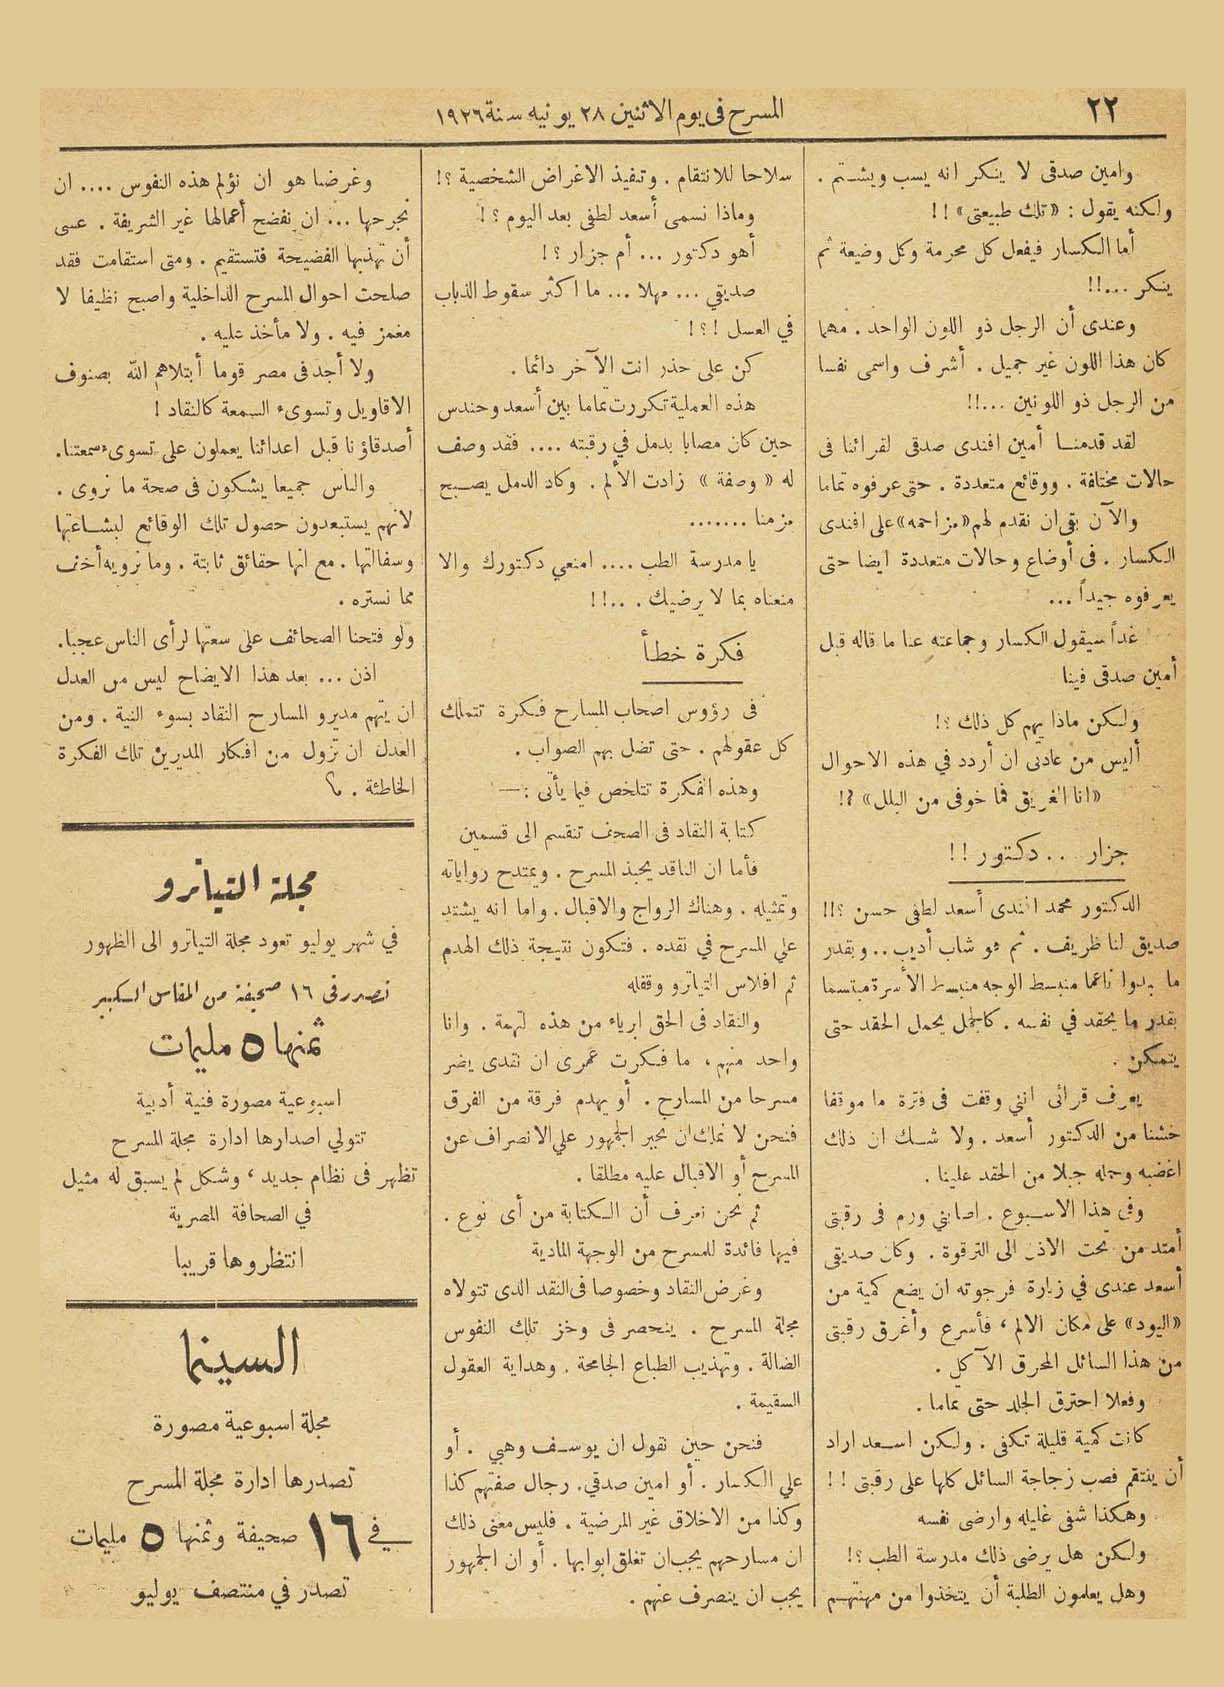 ٢٢
المسرح فى يوم الاثنين ٢٨ يونيه سنة ١٩٢٦
وامين صدقى لا ينكر انه يسب ويشتم .
ولكنه يقول : «تلك طبيعتى» !!
أما الكسار فيفعل كل محرمة وكل وضيعة ثم
ينكر ...!!
وعندى أن الرجل ذو اللون الواحد . مهما
كان هذا اللون غير جميل . أشرف واسمى نفسا
من الرجل ذو اللونين ...!!
لقد قدمنا أمين افندى صدقى لقرائنا فى
حالات مختلفة . ووقائع متعددة . حتى عرفوه تماما
والآن بقى ان نقدم لهم «مزاحمه» على افندى
الكسار . فى أوضاع وحالات متعددة ايضا حتى
يعرفوه جيداً ...
غداً سيقول الكسار وجماعته عنا ما قاله قبل
أمين صدقى فينا
ولكن ماذا يهم كل ذلك ؟!
أليس من عادتى ان أردد في هذه الاحوال
«انا الغريق فما خوفى من البلل» ؟!
جزار .. دكتور !!
الدكتور محمد افندى أسعد لطفى حسن ؟!!
صديق لنا ظريف . ثم هو شاب أديب .. وبقدر
ما يبدوا ناعما منبسط الوجه منبسط الأسرة مبتسما
بقدر ما يحقد في نفسه . كالجمل يحمل الحقد حتى
يتمكن .
يعرف قرائى انني وقفت فى فترة ما موقفا
خشنا من الدكتور أسعد . ولا شك ان ذلك
اغضبه وحمله جبلا من الحقد علينا .
وفى هذا الاسبوع . اصابني ورم فى رقبتى
أمتد من تحت الاذن الى الترقوة . وكان صديقى
أسعد عندى في زيارة فرجوته ان يضع كمية من
«اليود» على مكان الالم ، فأسرع وأغرق رقبتى
من هذا السائل المحرق الآكل .
وفعلا احترق الجلد حتى تماما .
كانت كمية قليلة تكفى . ولكن اسعد اراد
أن ينتقم فصب زجاجة السائل كلها على رقبتى !!
وهكذا شفى غليله وارضى نفسه
ولكن هل يرضى ذلك مدرسة الطب ؟!
وهل يعلمون الطلبة أن يتخذوا من مهنتهم
سلاحا للانتقام . وتنفيذ الاغراض الشخصية ؟!
وماذا نسمى أسعد لطفى بعد اليوم ؟!
أهو دكتور ... أم جزار ؟!
صديقي ... مهلا ... ما اكثر سقوط الذباب
في العسل !؟!
كن على حذر انت الآخر دائما .
هذه العملية تكررت تماما بين أسعد وحندس
حين كان مصابا بدمل في رقبته .... فقد وصف
له « وصفة » زادت الألم . وكاد الدمل يصبح
مزمنا .......
يا مدرسة الطب .... امنعي دكتورك والا
منعناه بما لا يرضيك . ..!!
فكرة خطأ
فى رؤوس اصحاب المسارح فكرة تتملك
كل عقولهم . حتى تضل بهم الصواب .
وهذه الفكرة تتلخص فيما يأتى :—
كتابة النقاد فى الصحف تنقسم الى قسمين
فأما ان الناقد يحبذ المسرح . ويمتدح رواياته
وتمثيله . وهناك الرواج والاقبال . واما انه يشتد
علي المسرح في نقده . فتكون نتيجة ذلك الهدم
ثم افلاس التياترو وقفله
والنقاد فى الحق ابرياء من هذه التهمة . وانا
واحد منهم ، ما فكرت عمرى ان نقدى يضر
مسرحا من المسارح . أو يهدم فرقة من الفرق
فنحن لا نملك ان نجبر الجمهور علي الانصراف عن
المسرح أو الاقبال عليه مطلقا .
ثم نحن نعرف أن الكتابة من أى نوع .
فيها فائدة للمسرح من الوجهة المادية
وغرض النقاد وخصوصا فى النقد الذى تتولاه
مجلة المسرح . ينحصر فى وخز تلك النفوس
الضالة . وتهذيب الطباع الجامحة . وهداية العقول
السقيمة .
فنحن حين نقول ان يوسف وهبي . أو
علي الكسار . أو امين صدقي . رجال صفتهم كذا
وكذا من الاخلاق غير المرضية . فليس معنى ذلك
ان مسارحهم يجب ان تغلق ابوابها . أو ان الجمهور
يجب ان ينصرف عنهم .
وغرضنا هو ان نؤلم هذه النفوس .... ان
نجرحها ... ان نفضح أعمالها غير الشريفة . عسى
أن تهذبها الفضيحة فتستقيم . ومتى استقامت فقد
صلحت احوال المسرح الداخلية واصبح نظيفا لا
مغمز فيه . ولا مأخذ عليه .
ولا أجد فى مصر قوما أبتلاهم الله بصنوف
الاقاويل وتسوىء السمعة كالنقاد !
أصدقاؤنا قبل اعدائنا يعملون على تسوىء سمعتنا .
والناس جميعا يشكون فى صحة ما نروى .
لانهم يستبعدون حصول تلك الوقائع لبشاعتها
وسفالتها . مع انها حقائق ثابتة . وما نرويه أخف
مما نستره .
ولو فتحنا الصحائف على سعتها لرأى الناس عجبا .
اذن ... بعد هذا الايضاح ليس من العدل
ان يتهم مديرو المسارح النقاد بسوء النية . ومن
العدل ان تزول من افكار المديرين تلك الفكرة
الخاطئة .
مجلة التياترو
في شهر يوليو تعود مجلة التياترو الى الظهور
تصدر فى ١٦ صحيفة من المقاس الكبير
ثمنها ٥ مليمات
اسبوعية مصورة فنية أدبية
تتولي اصدارها ادارة مجلة المسرح
تظهر فى نظام جديد ، وشكل لم يسبق له مثيل
في الصحافة المصرية
انتظروها قريبا
السينما
مجلة اسبوعية مصورة
تصدرها ادارة مجلة المسرح
في ١٦ صحيفة وثمنها ٥ مليمات
تصدر في منتصف يوليو